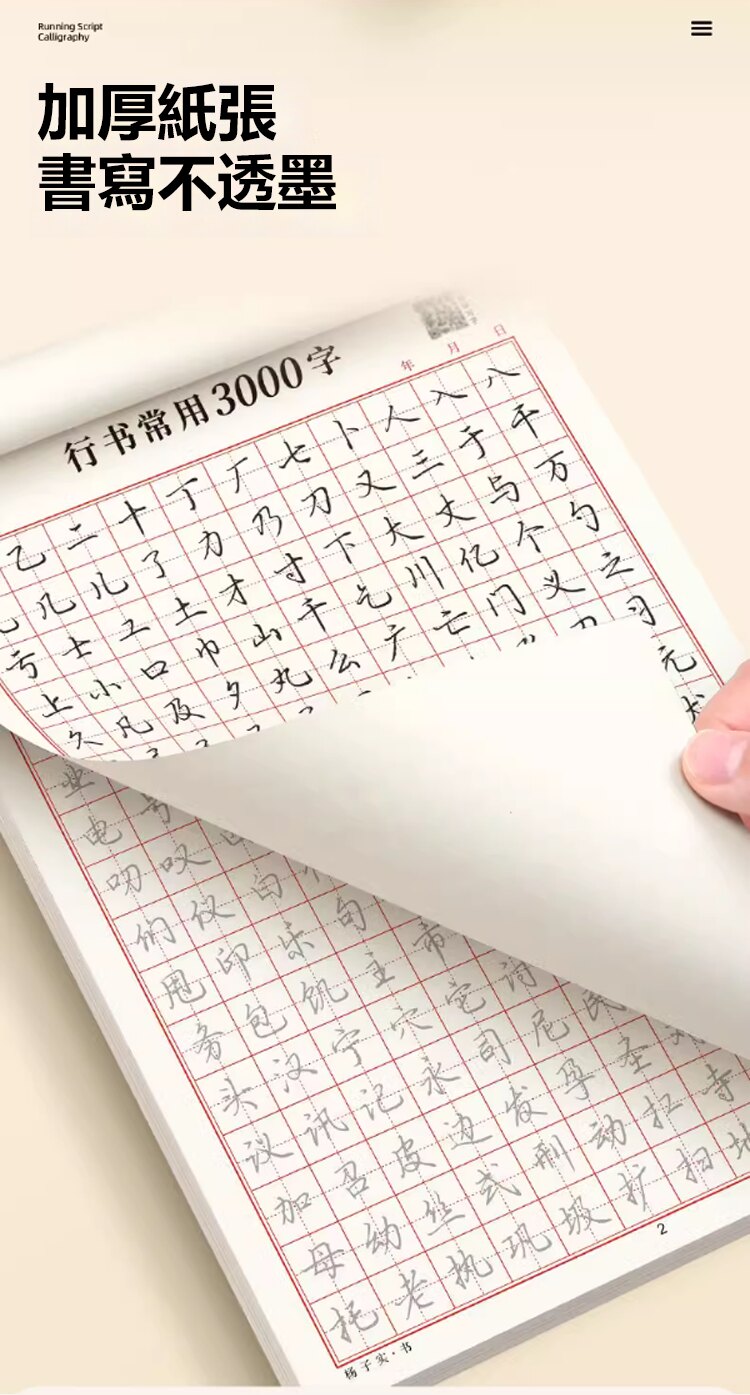 Running Script
Calligraphy
加厚紙張
書寫不透墨
行书常用3000字
年 月 日
乙 二 十 丁 厂 七 卜 人 入 八
几 儿 了 力 乃 刀 又 三 于 干
亏 士 工 土 才 寸 下 大 丈 与 万
上 小 口 巾 山 千 乞 川 亿 个 勺
久 凡 及 夕 丸 么 广 亡 门 义 之
习
元
业
电 号
叨 叹
们 仪 白
甩 印 乐 句
务 包 饥 主 市
头 汉 宁 穴 宅
议 讯 记 永 司 尼 民
加 召 皮 边 发 孕 圣
母 幼 丝 式 刑 动 扛 寺
托 老 执 巩 圾 扩 扫 地
2
杨子实·书